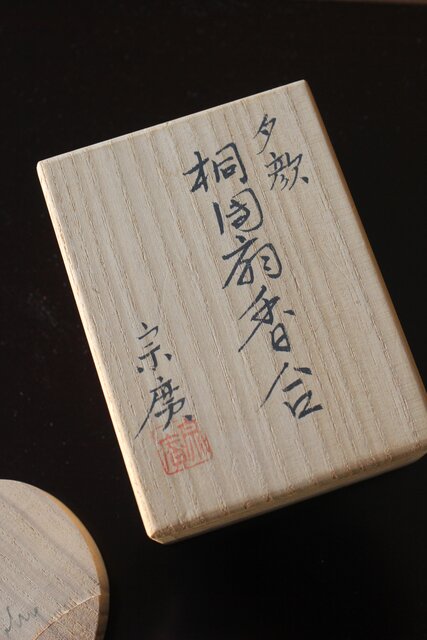 夕顔
桐団扇香合
宗廣